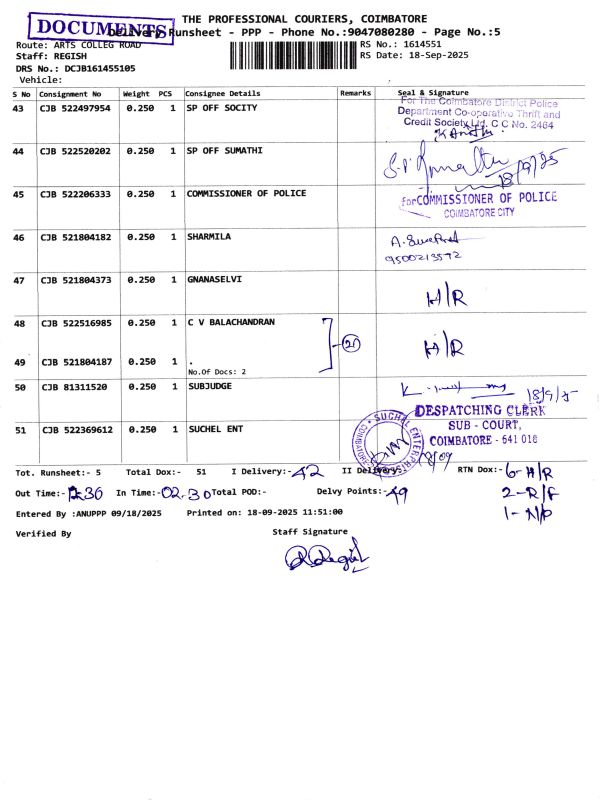 THE PROFESSIONAL COURIERS, COIMBATORE
DOCUMENTS
Delivery Runsheet - PPP - Phone No.:9047080280 - Page No.:5
Route: ARTS COLLEG ROAD
RS No.: 1614551
Staff: REGISH
RS Date: 18-Sep-2025
DRS No.: DCJB161455105
Vehicle:
S No Consignment No Weight PCS Consignee Details Remarks Seal & Signature
43 CJB 522497954 0.250 1 SP OFF SOCITY
For The Coimbatore District Police
Department Co-operative Thrift and
Credit Society Ltd. C C No. 2464
44 CJB 522520202 0.250 1 SP OFF SUMATHI
18/9/25
45 CJB 522206333 0.250 1 COMMISSIONER OF POLICE
for COMMISSIONER OF POLICE
COIMBATORE CITY
46 CJB 521804182 0.250 1 SHARMILA
9500213572
47 CJB 521804373 0.250 1 GNANASELVI
H/R
48 CJB 522516985 0.250 1 C V BALACHANDRAN
H/R
49 CJB 521804187 0.250 1 .
No.Of Docs: 2
50 CJB 81311520 0.250 1 SUBJUDGE
18/9/25
DESPATCHING CLERK
SUB - COURT,
COIMBATORE - 641 018
51 CJB 522369612 0.250 1 SUCHEL ENT
SUCHEL ENTERPRISES
18/09
Tot. Runsheet:- 5 Total Dox:- 51 I Delivery:- 42 II Delivery:- RTN Dox:- 6-H/R
Out Time:- 12.30 In Time:- 02.30 Total POD:- Delvy Points:- 49 2-R/F
1-N/P
Entered By :ANUPPP 09/18/2025 Printed on: 18-09-2025 11:51:00
Verified By Staff Signature